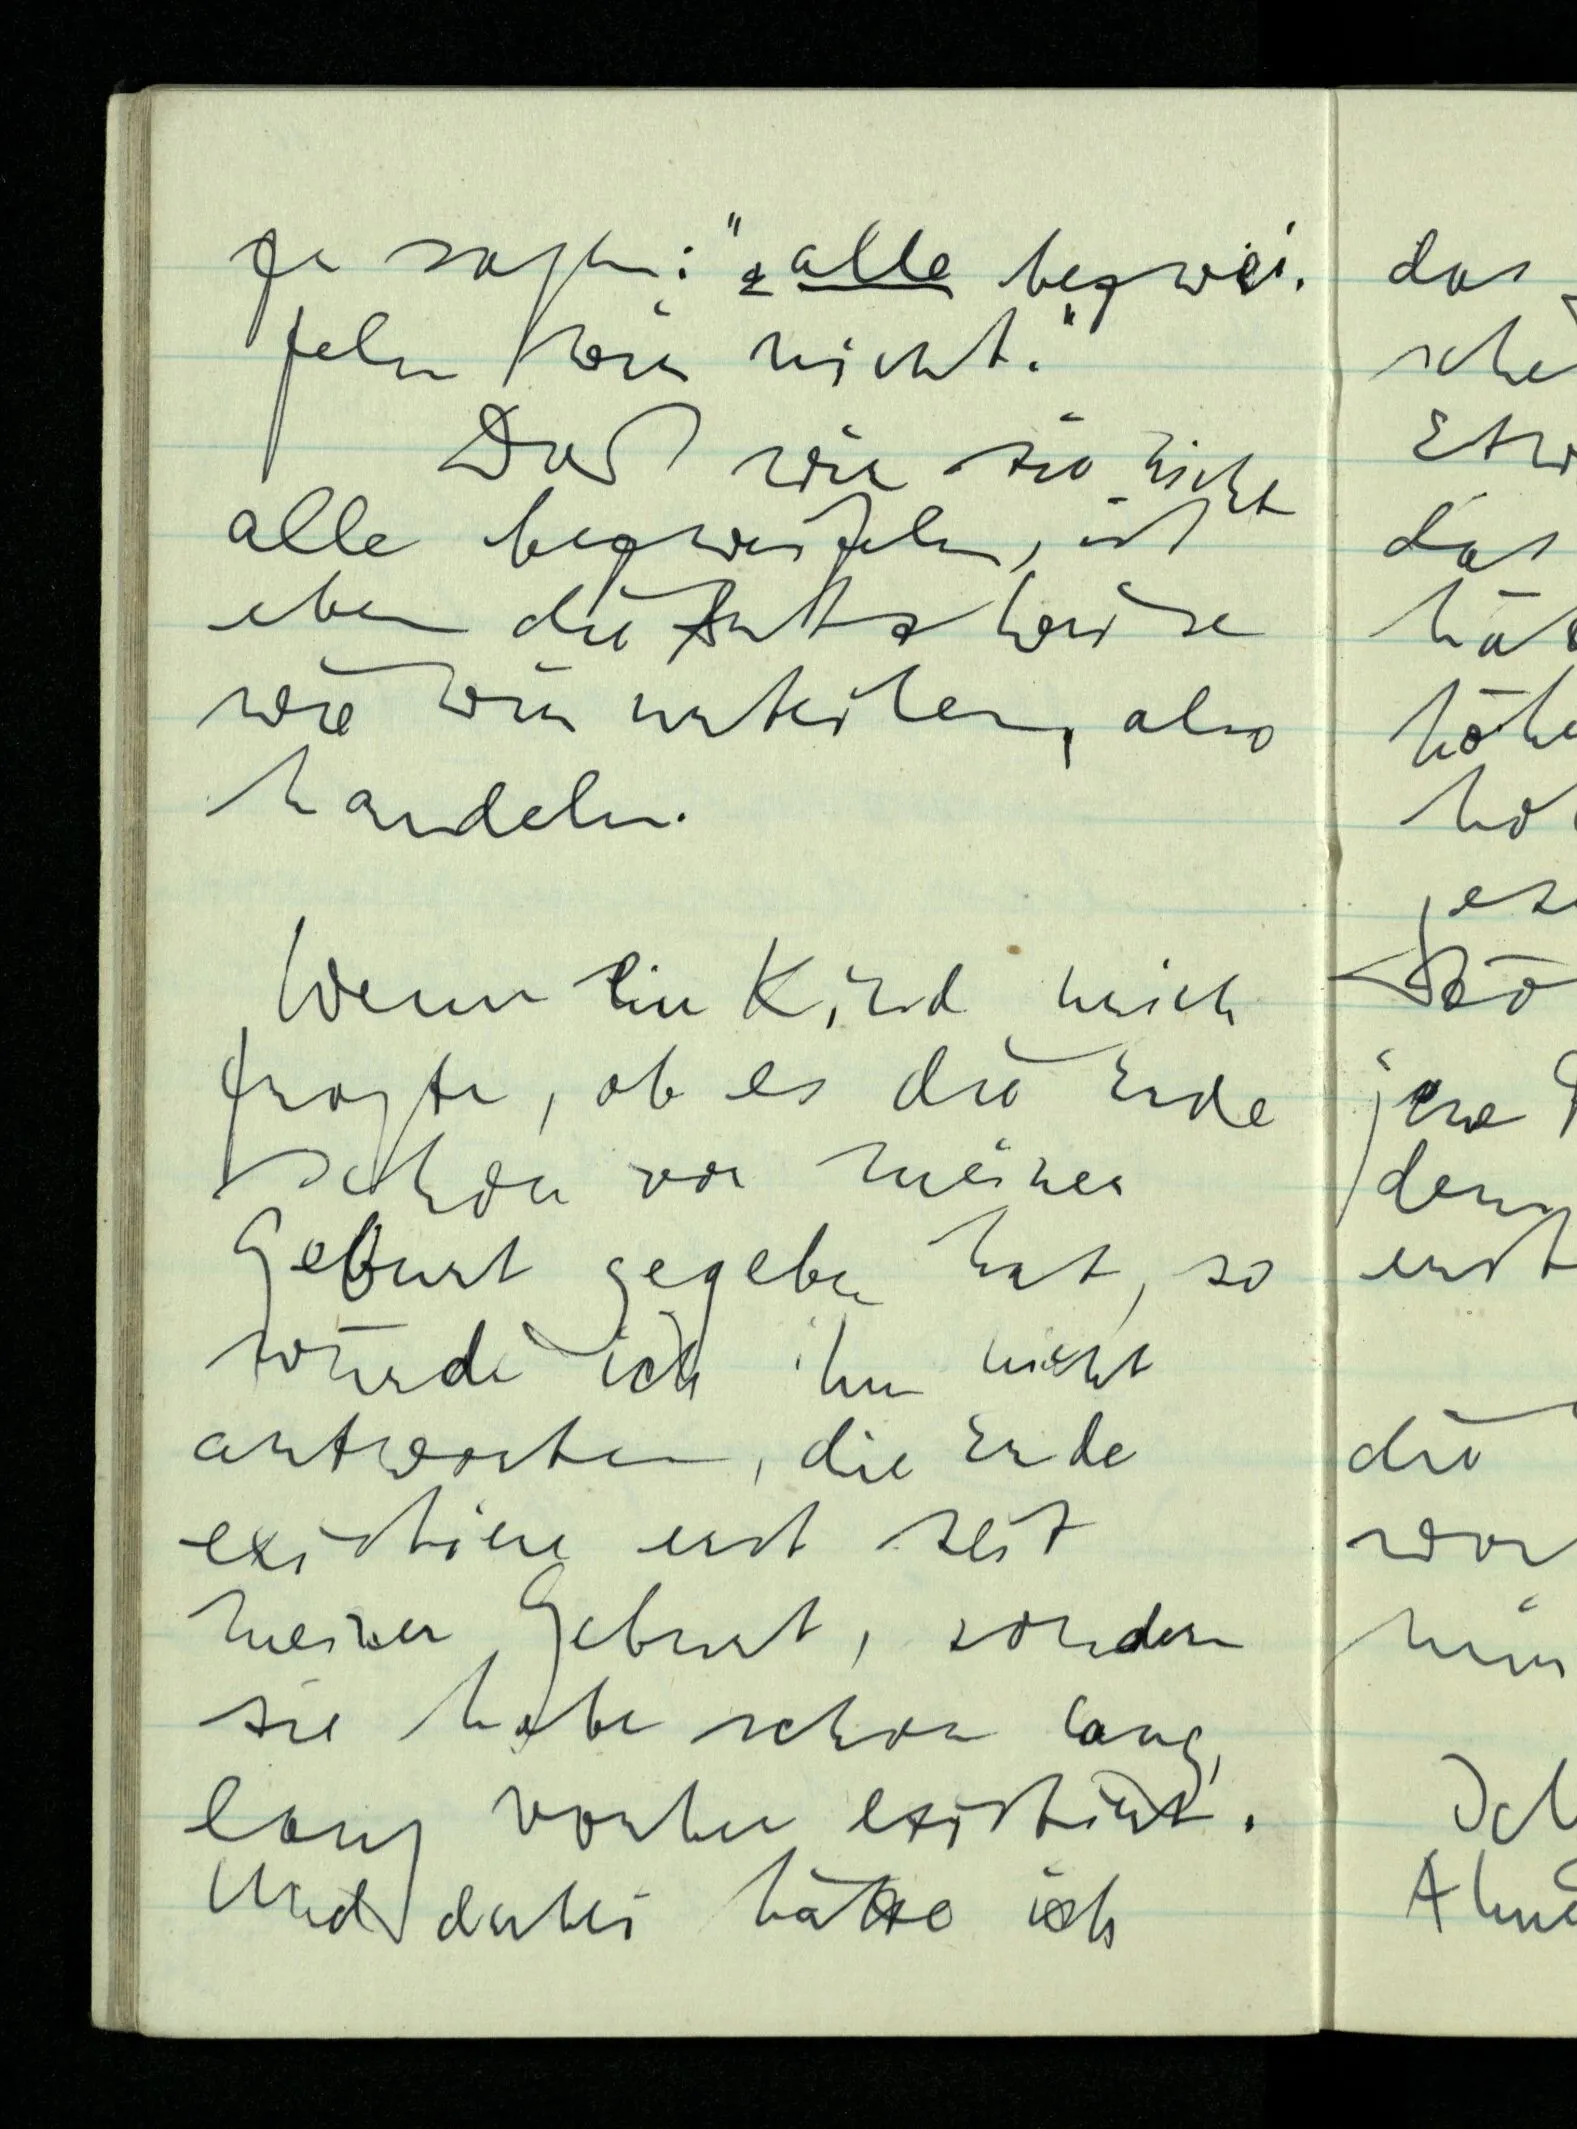 zu sagen: "alle bezwei-
feln wir nicht."
Daß wir sie nicht
alle bezweifeln, ist
eben die Art & Weise
wie wir urteilen, also
handeln.
Wenn ein Kind mich
fragte, ob es die Erde
schon vor meiner
Geburt gegeben hat, so
würde ich ihm nicht
antworten, die Erde
existiere erst seit
meiner Geburt, sondern
sie habe schon lang,
lang vorher existiert.
Und dabei hätte ich
das
das
jene
die